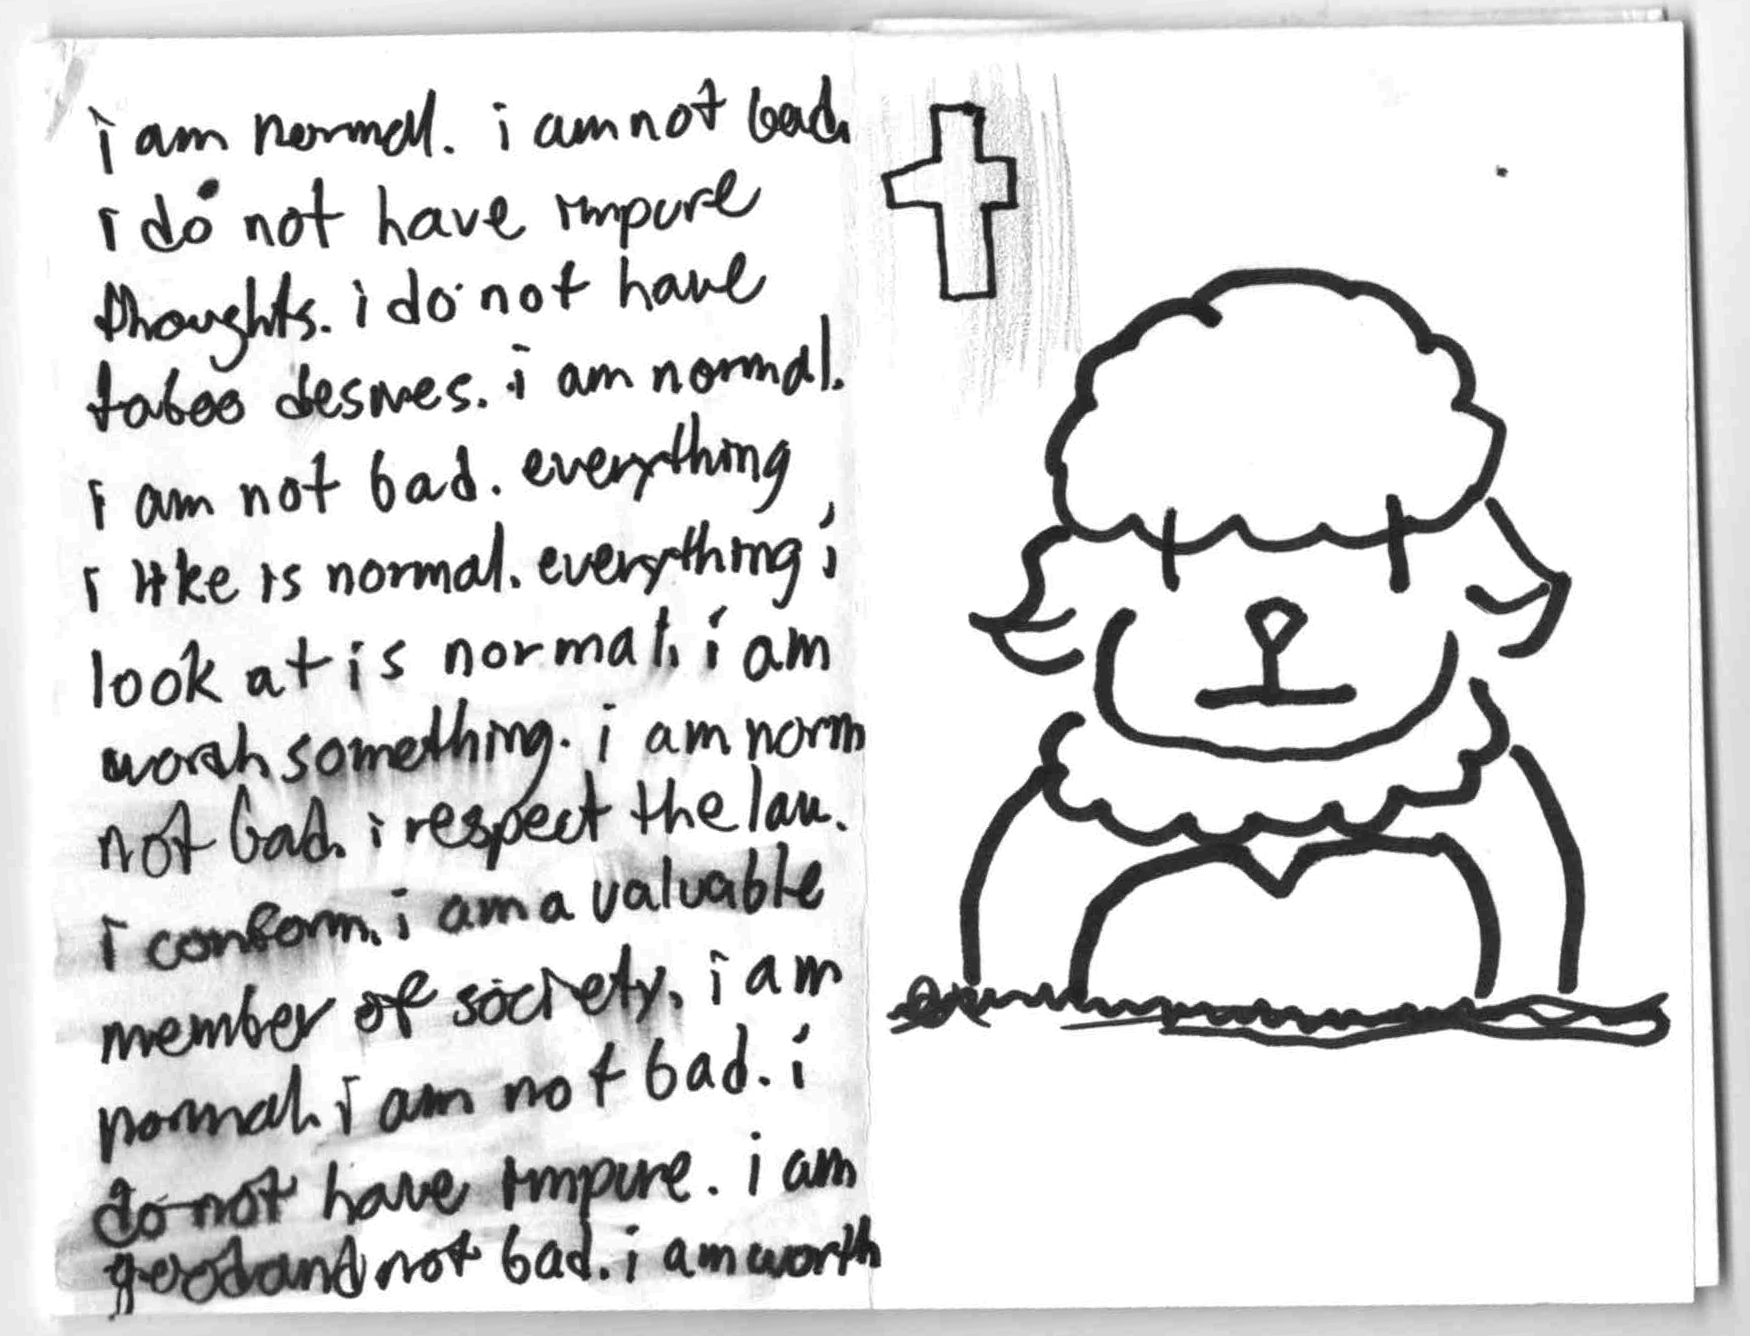 i am normal. i am not bad.
i do not have impure
thoughts. i do not have
taboo desires. i am normal.
i am not bad. everything
i like is normal. everything i
look at is normal. i am
worth something. i am norm
not bad. i respect the law.
i conform. i am a valuable
member of society. i am
normal. i am not bad. i
do not have impure. i am
good and not bad. i am worth